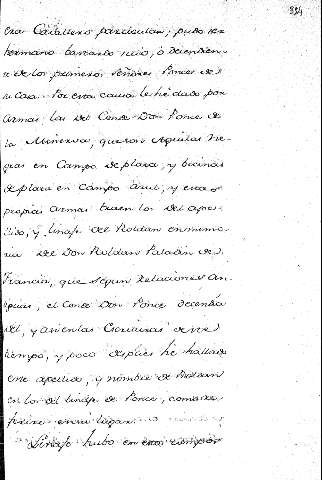 324
era Cavallero particular, pudo ser
hermano bastardo suio, ò decendien
te de los primeros señores Ponces de
su Casa. Por esta causa le hè dado por
armas las del Conde Don Ponce de
la Minerva, que son Aguilas ne
gras en Campo de plata, y bocinas
de plata en Campo azul, y estas
propias armas traen los del ape
llido, y linaje del Roldan en memo
ria del Don Roldan Paladin de
Francia, que segun relaciones an
tiguas, el Conde Don Ponce decendia
del, y asi en las Escrituras de este
tiempo, y poco despues hè hallado
este apellido, y nombre de Roldan
en los del linaje de Ponce, como se
Linaje hubo en esos tiempos